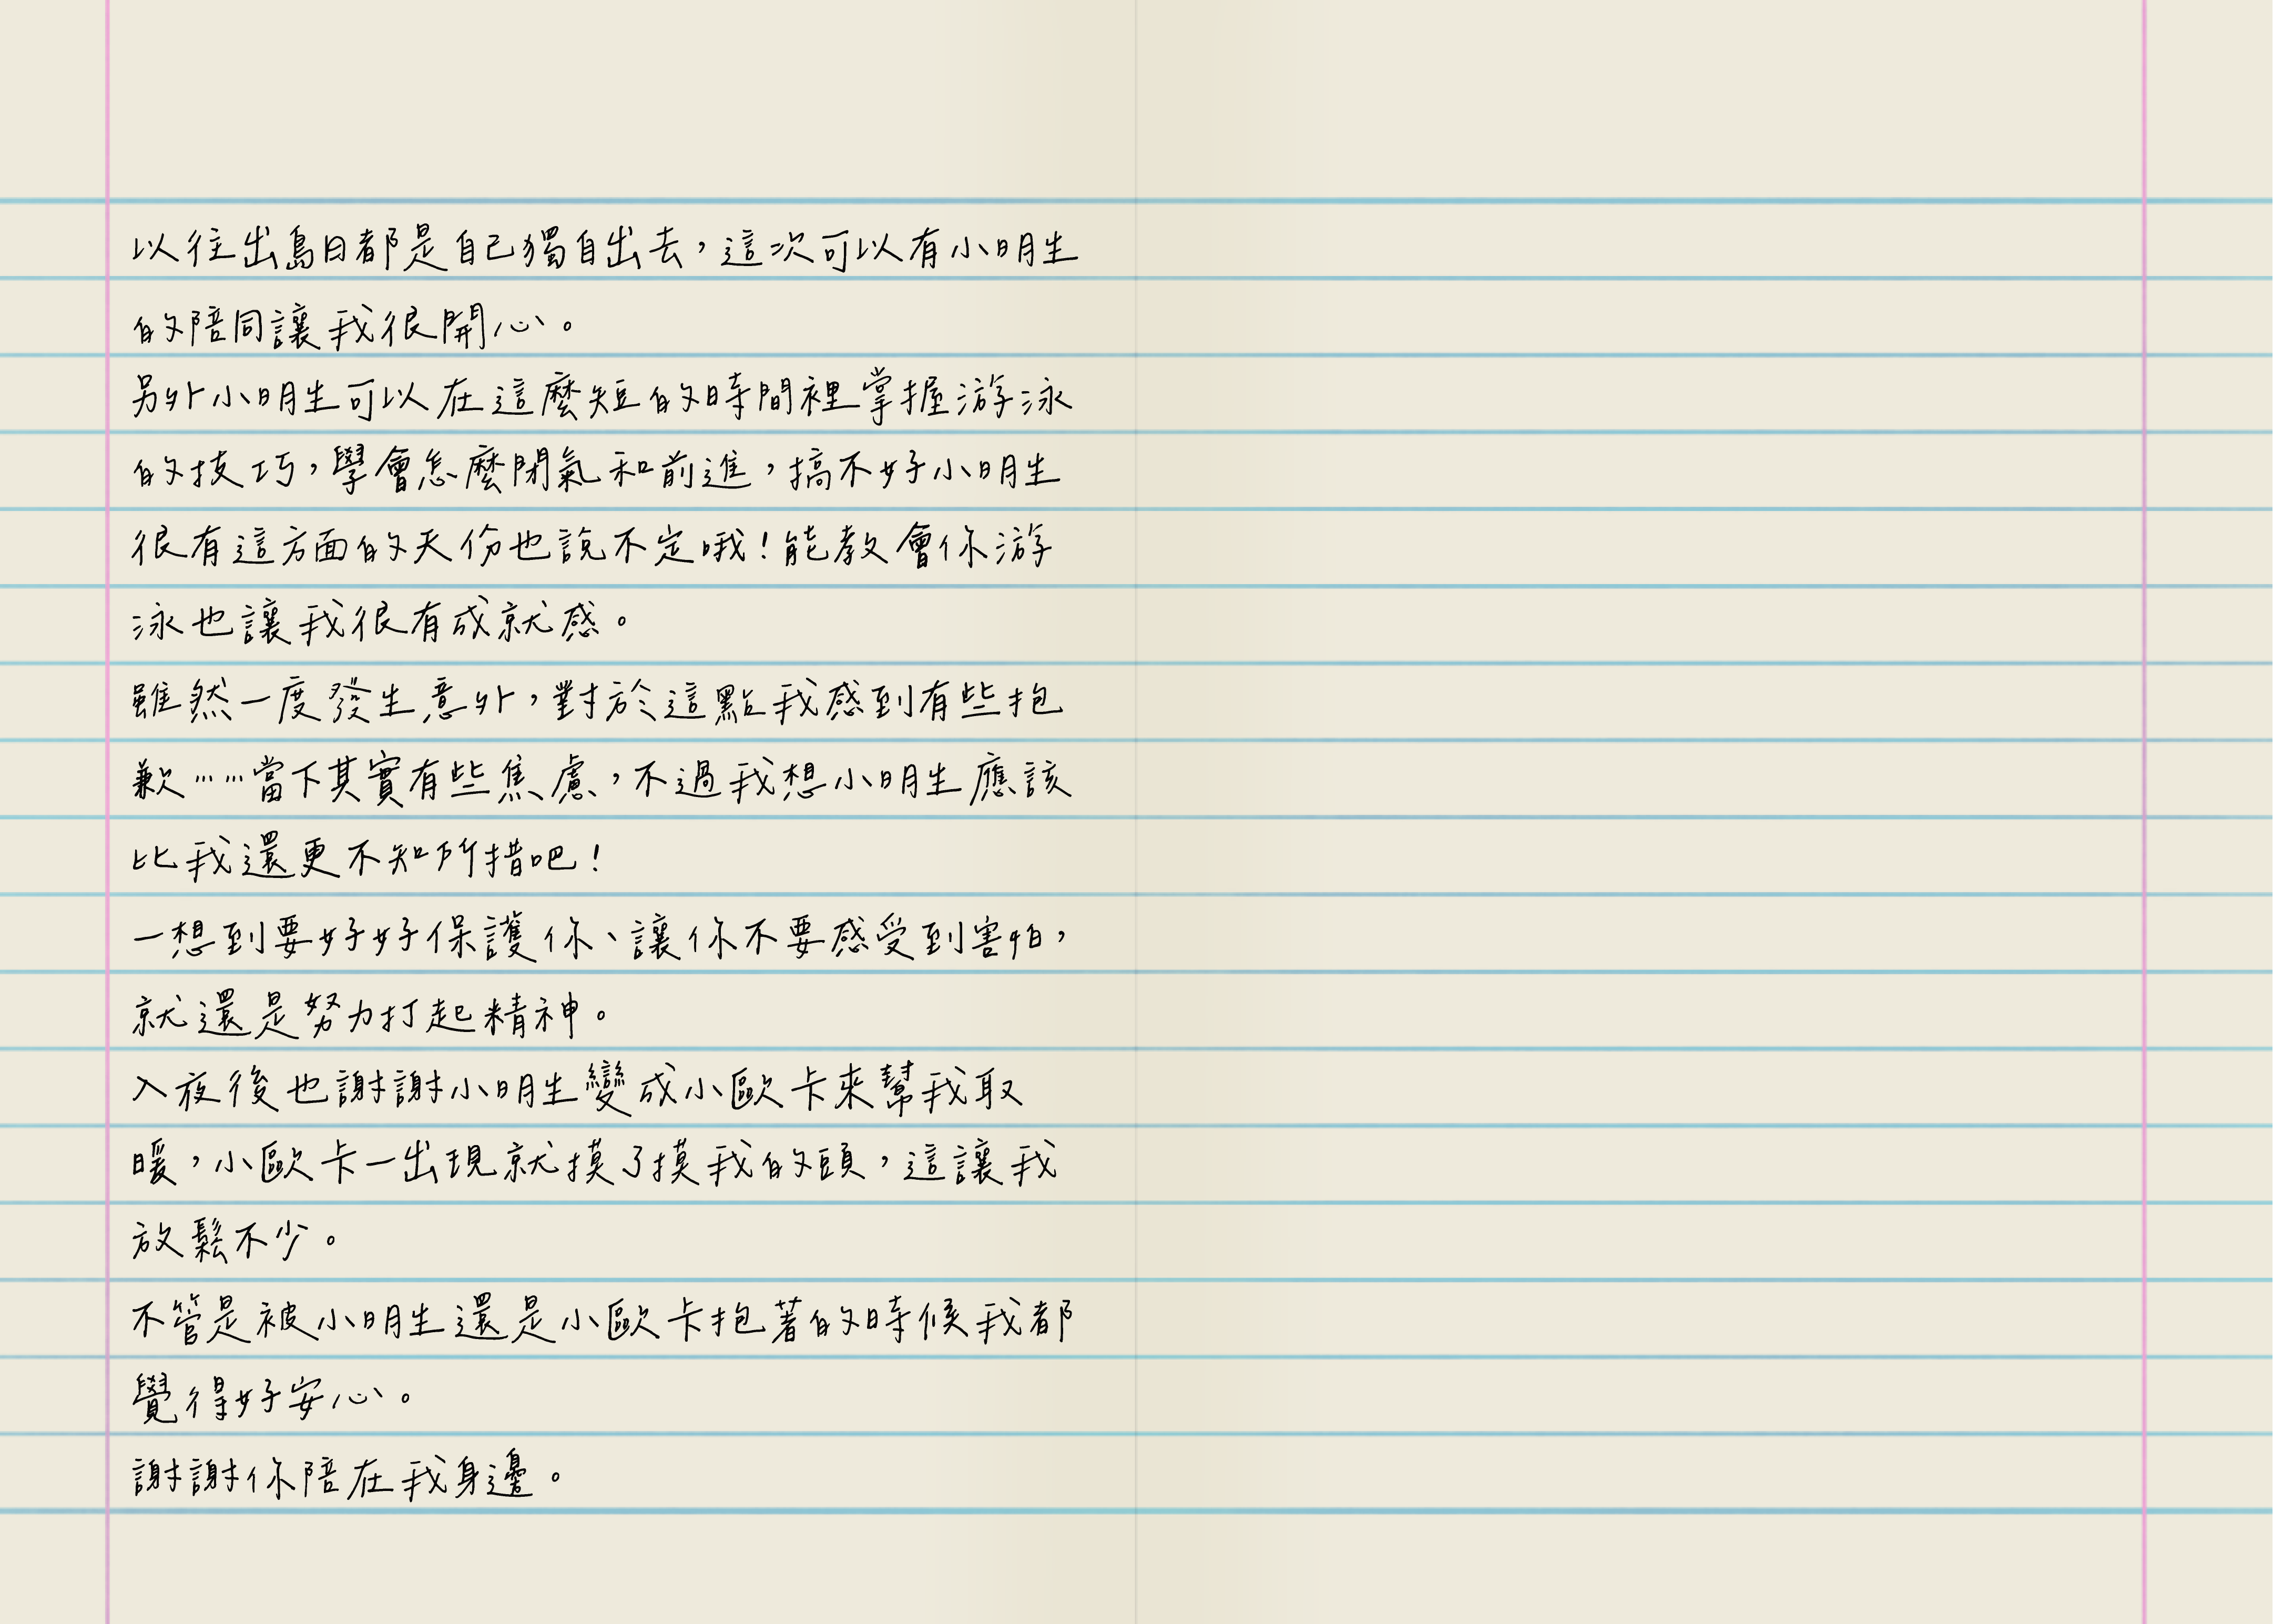 以往出島日都是自己獨自出去，這次可以有小明生
的陪同讓我很開心。
另外小明生可以在這麼短的時間裡掌握游泳
的技巧，學會怎麼閉氣和前進，搞不好小明生
很有這方面的天份也說不定哦！能教會你游
泳也讓我很有成就感。
雖然一度發生意外，對於這點我感到有些抱
歉……當下其實有些焦慮，不過我想小明生應該
比我還更不知所措吧！
一想到要好好保護你、讓你不要感受到害怕，
就還是努力打起精神。
入夜後也謝謝小明生變成小歐卡來幫我取
暖，小歐卡一出現就摸了摸我的頭，這讓我
放鬆不少。
不管是被小明生還是小歐卡抱著的時候我都
覺得好安心。
謝謝你陪在我身邊。